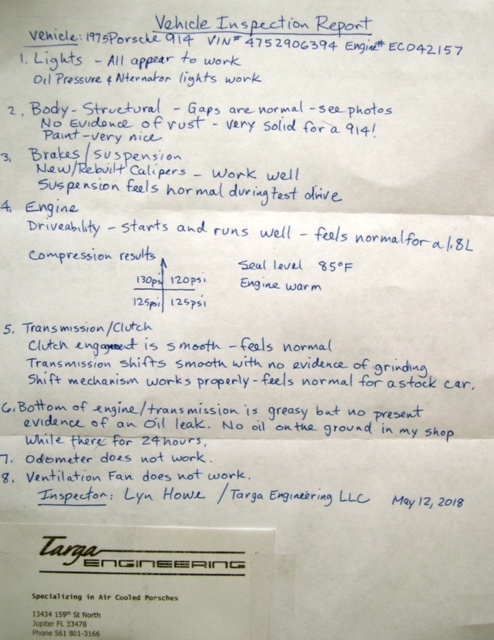 Vehicle Inspection Report
Vehicle: 1975 Porsche 914 VIN# 4752906394 Engine# EC042157
1. Lights - All appear to work
Oil Pressure & Alternator lights work
2. Body - Structural - Gaps are normal - see photos
No Evidence of rust - very solid for a 914!
Paint - very nice
3. Brakes/Suspension
New/Rebuilt Calipers - Work well
Suspension feels normal during test drive
4. Engine
Driveability - starts and runs well - feels normal for a 1.8L
Compression results
Seal level 85°F
130psi 120psi
Engine warm
125psi 125psi
5. Transmission/Clutch
Clutch engagement is smooth - feels normal
Transmission shifts smooth with no evidence of grinding
Shift mechanism works properly - feels normal for a stock car.
6. Bottom of engine/transmission is greasy but no present
evidence of an Oil leak. No oil on the ground in my shop
while there for 24 hours.
7. Odometer does not work.
8. Ventilation Fan does not work.
Inspector: Lyn Howe / Targa Engineering LLC May 12, 2018
Targa
ENGINEERING
Specializing in Air Cooled Porsches
13434 159th St North
Jupiter FL 33478
Phone 561 801-3166